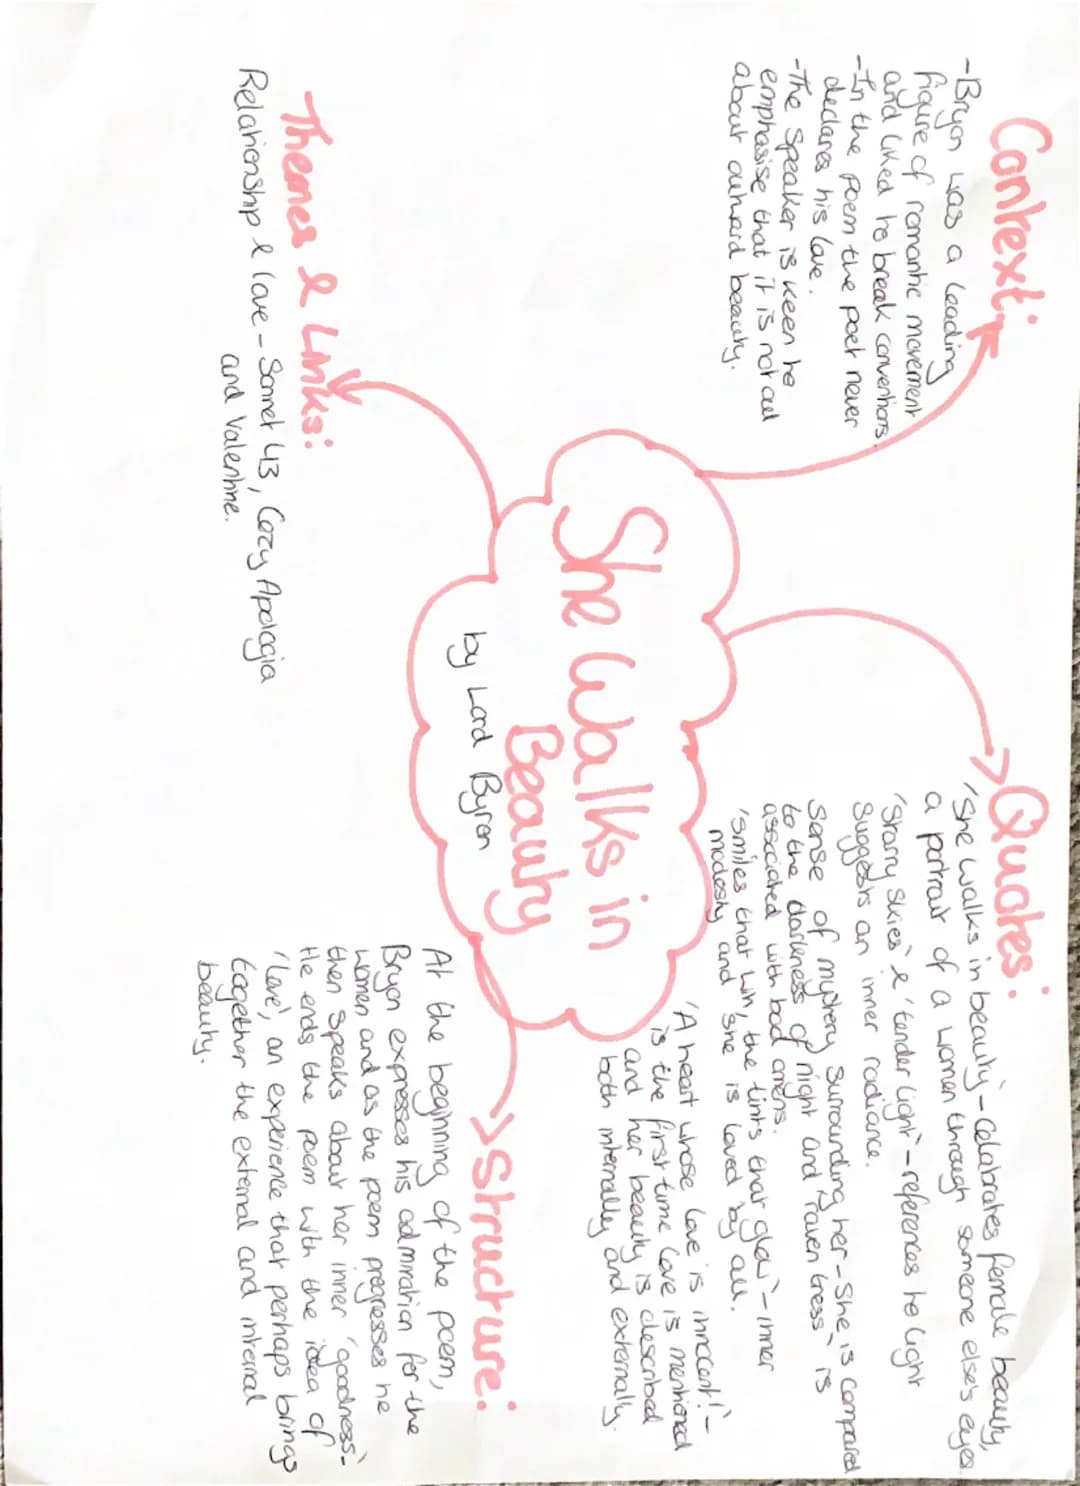 She Walks in
Beauty
by Lord Byron
Context:
-Bryon was a leading
figure of romantic movement
and liked to break conventions.
-In the poem the poet never
declares his love.
-The speaker is keen to
emphasise that it is not all
about outward beauty.
Quotes:
'She walks in beauty' - celabrates female beauty,
a portrait of a women through someone else's eyes
'Starry skies' & 'tender light' - references to light
suggests an inner radiance.
Sense of mystery surrounding her - She is compared
to the darkness of night and 'raven tress' is
associated with bad omens.
'smiles that win, the tints that glow' - inner
modesty and she is loved by all.
'A heart whose love is innocent!' -
is the first time love is mentioned
and her beauty is described
both internally and externally.
Themes & Links:
Relationship & love - Sonnet 43, Cozy Apologia
and Valentine.
Structure:
At the beginning of the poem,
Bryon expresses his admiration for the
women and as the poem progresses he
then speaks about her inner 'goodness'-
He ends the poem with the idea of
'love', an experience that perhaps brings
together the external and internal
beauty.